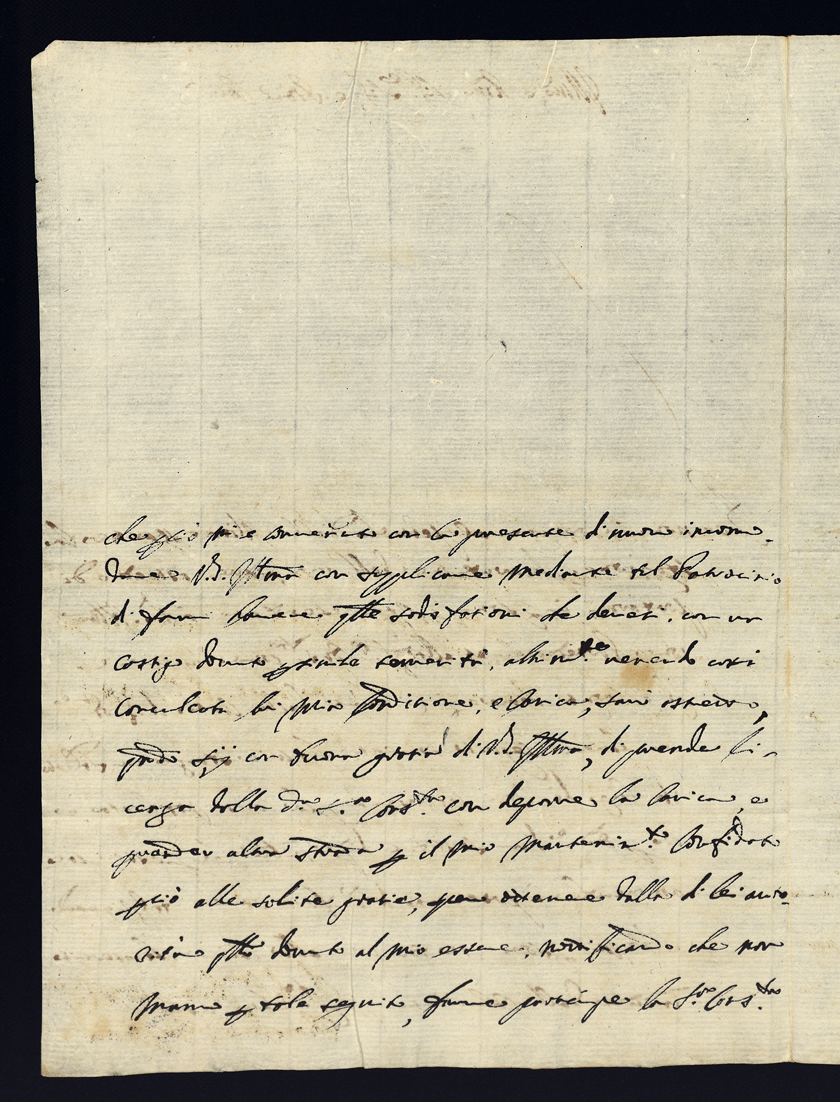 che p ciò mi è convenuto con la presente di nuovo incomo-
dare V.S. Ill.ma con supplicarne mediante il Patrocinio
di farmi havere q.lle sodisfationi che deve, con un
castigo dovuto p simile temerità, altrim.te venendo così
Conculcata la mia Conditione, e Carica, sarò astretto,
q.ndo sij con buona gratia di V.S. Ill.ma, di prender li-
cenza dalla d.a S.ra Cons.te con deporre la Carica, e
prender altra strada p il mio mantenim.to Confidato
p ciò alle solite gratie, per ottenere dalla di lei auto-
rità q.llo dovuto al mio essere, notificando che non
p tale seguito, farne partecipe la S.ra Cons.te